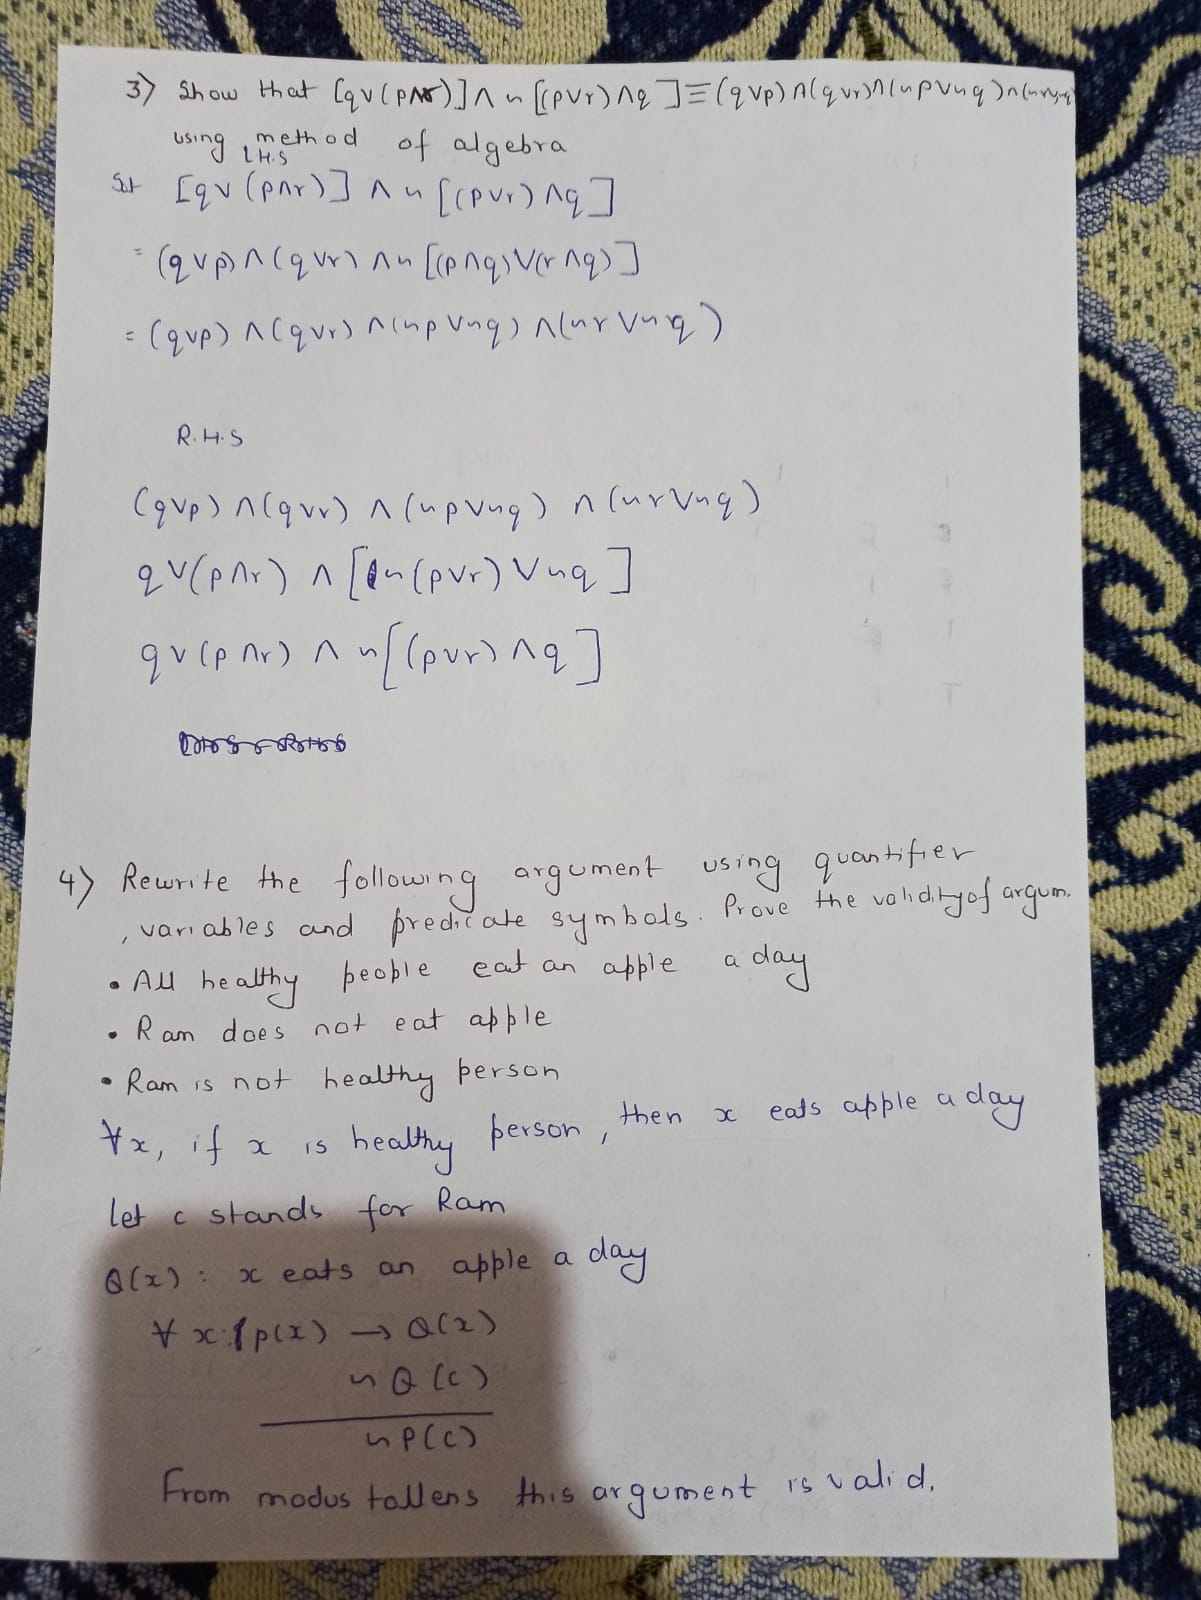 3) Show that [q∨(p∧r)]∧~[(p∨r)∧q]≡(q∨p)∧(q∨r)∧(~p∨~q)∧(~r∨~q)
using method of algebra
L.H.S
Sol [q∨(p∧r)]∧~[(p∨r)∧q]
= (q∨p)∧(q∨r)∧~[(p∧q)∨(r∧q)]
= (q∨p)∧(q∨r)∧(~p∨~q)∧(~r∨~q)
R.H.S
(q∨p)∧(q∨r)∧(~p∨~q)∧(~r∨~q)
q∨(p∧r)∧[~(p∨r)∨~q]
q∨(p∧r)∧~[(p∨r)∧q]
4) Rewrite the following argument using quantifier
, variables and predicate symbols. Prove the validity of argum.
• All healthy people eat an apple a day
• Ram does not eat apple
• Ram is not healthy person
∀x, if x is healthy person, then x eats apple a day
let c stands for Ram
Q(x): x eats an apple a day
∀ x: p(x) → Q(x)
~Q(c)
~P(c)
From modus tollens this argument is valid.